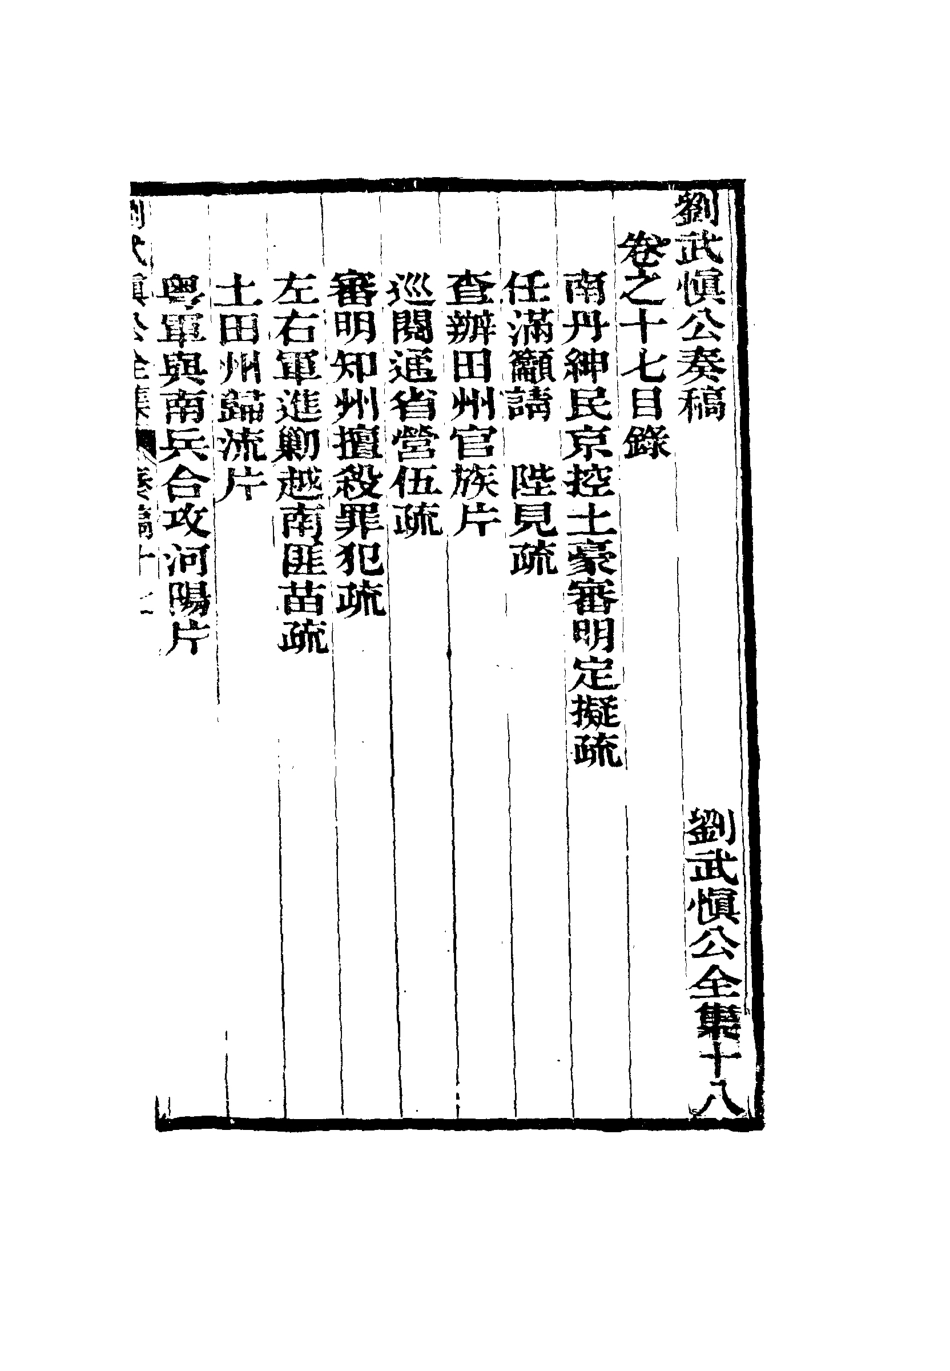 劉武慎公奏稿　劉武慎公全集十八
卷之十七目錄
南丹紳民京控土豪審明定擬疏
任滿籲請　陛見疏
查辦田州官族片
巡閱通省營伍疏
審明知州擅殺罪犯疏
左右軍進勦越南匪苗疏
土田州歸流片
粵軍與南兵合攻河陽片
劉武慎公全集　奏稿十七